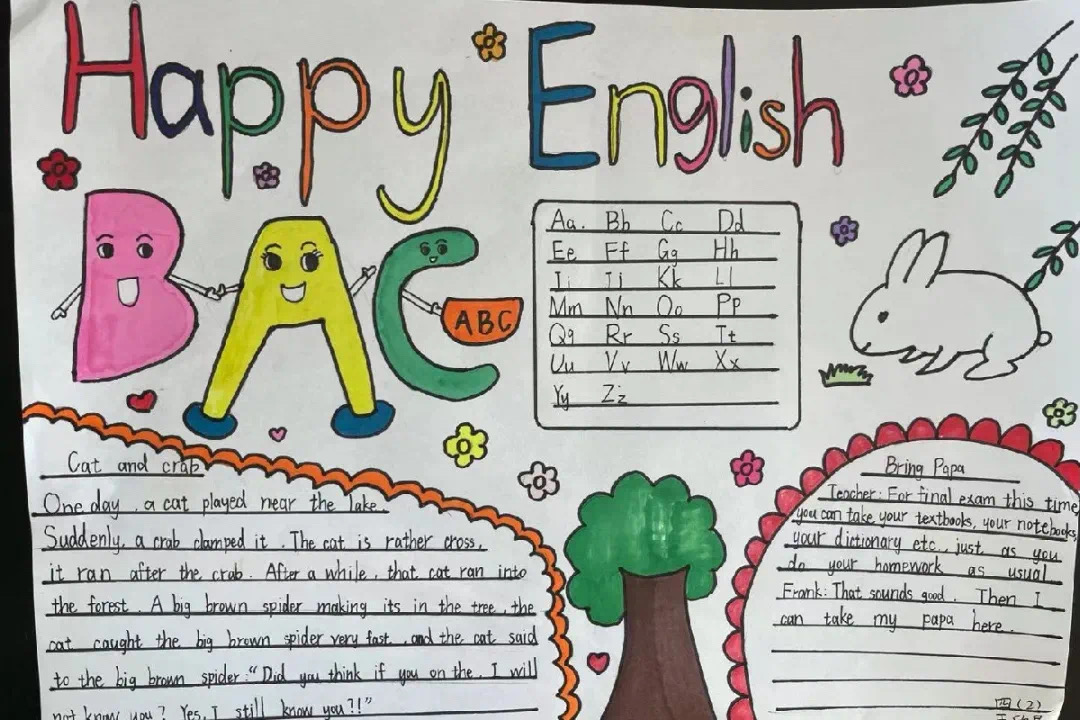 Happy English
BAC
ABC
Aa. Bb Cc Dd
Ee Ff Gg Hh
Ii Jj Kk Ll
Mm Nn Oo Pp
Qq Rr Ss Tt
Uu Vv Ww Xx
Yy Zz
Cat and crab
One day , a cat played near the lake.
Suddenly, a crab clamped it . The cat is rather cross,
it ran after the crab. After a while, that cat ran into
the forest. A big brown spider making its in the tree, the
cat caught the big brown spider very fast, and the cat said
to the big brown spider:“Did you think if you on the. I will
not know you? Yes, I still know you?!”
Bring Papa
Teacher: For final exam this time,
you can take your textbooks, your notebooks,
your dictionary etc., just as you
do your homework as usual
Frank: That sounds good. Then I
can take my papa here.
四(2)